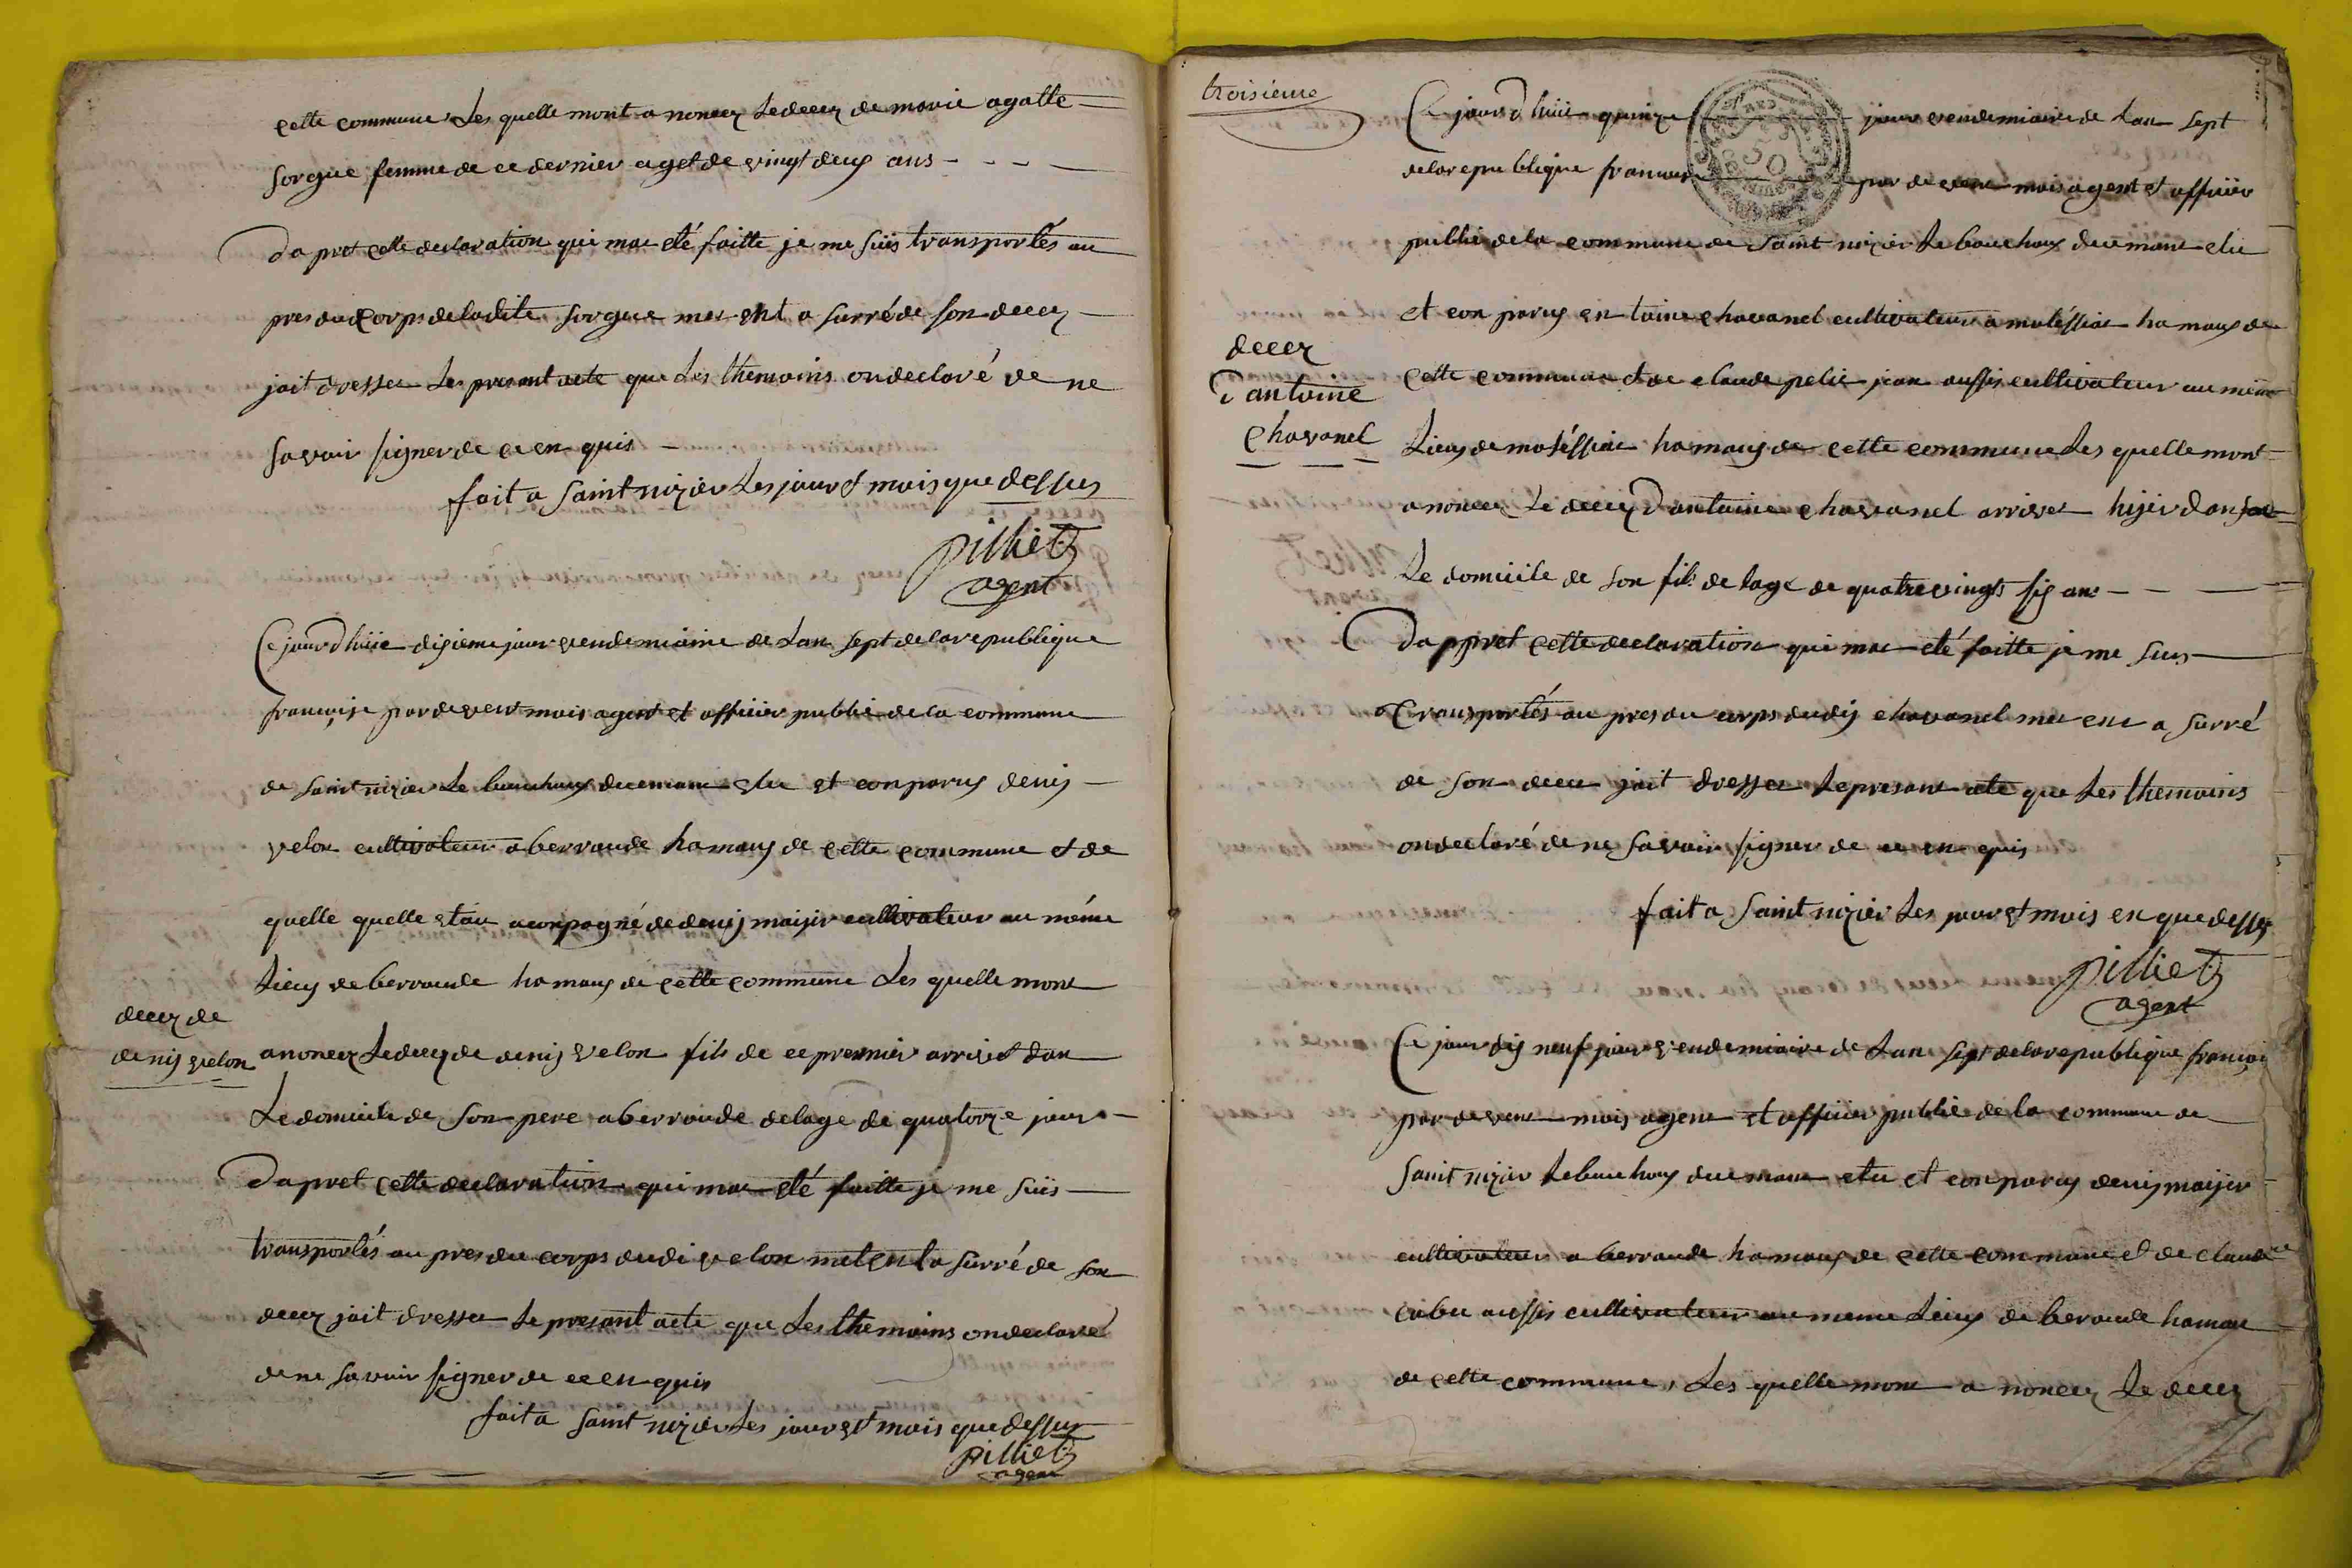 cette commune Les quelle mont a noncez Le decez de marie agatte
sorgue femme de ce dernier aget de vingt deux ans
Da pret cette declaration qui mat eté faitte je me suis transportés au
pres du Corps de ladite sorgue met ent a surré de son decez
jait dresser Les presant acte que Les themoins on declaré de ne
savoir signer de ce en quis
fait a saint nizier Les jour et mois que dessus
pilliet
agent
Ce jourd huie dixieme jour vendemiaire de Lan sept de la republique
francoise par devent mois agent et officier public de la commune
de saint nizier Le bouchoux ducmant elu et conparus denis
velon cultivateur a berraude hamaux de cette commune et de
quelle quelle etau aconpagné de denis maijer cultivateur au même
Lieux de berraude hamaux de cette commune Les quelle mont
decez de
denis velon
anoncez Le decez de denis velon fils de ce premier arrivet dan
Le domicile de son pere a berraude de lage de quatorze jour
Dapret cette declaration qui mat eté faitte je me suis
transportés au pres du corps dudi velon met ent a surré de son
decez jait dresser Le presant acte que Les themoins on declaré
de ne savoir signer de ce en quis
fait a saint nizier Les jour et mois que dessus
pilliet
agent
troisieme
Ce jourd huie quinze jour vendemiaire de Lan sept
de la republique francoise par devent mois agent et officier
public de la commune de saint nizier Le bouchoux ducmant elu
et con parus en toine chavanel cultivateur a molissiat hamaux de
decez
d'antoine
Chavanel
cette commune et de claude pelie jean aussis cultivateur au même
Lieux de molissiat hamaux de cette commune Les quelle mont
a noncez Le decez d'antoine chavanel arrivet hijer dan
Le domicile de son fils de lage de quatre vingts six ans
Dappret cette declaration qui mat eté faitte je me suis
transportés au pres du corps dudis chavanel met ent a surré
de son decez jait dresser Le presant acte que Les themoins
on declaré de ne savoir signer de ce en quis
fait a saint nizier Les jour et mois en que dessus
pilliet
agent
Ce jour dix neuf jour vendemiaire de Lan sept de la republique francois
par devent mois agent et officier public de la commune de
saint nizier Le bouchoux ducmant elu et conparus denis maijer
cultivateur a berraude hamaux de cette commune et de claude
aussis cultivateur au meme Lieux de beraude hamau
de cette commune, Les quelle mont a noncez Le decez